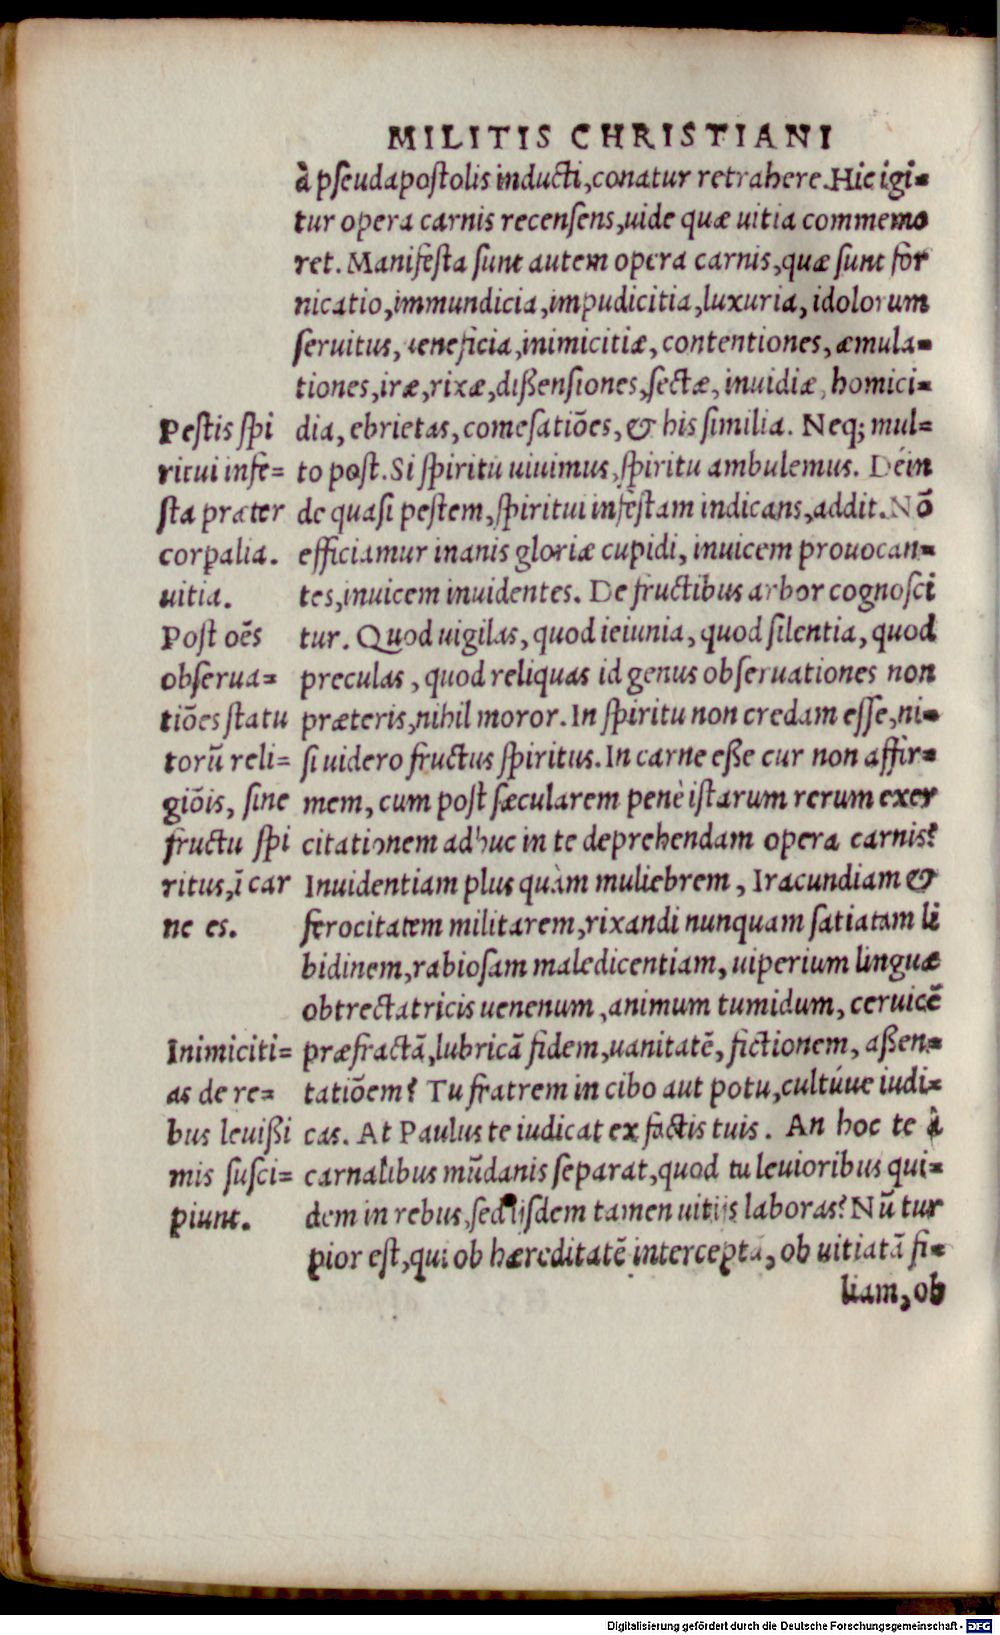 MILITIS CHRISTIANI
à pseudapostolis inducti, conatur retrahere. Hic igi=
tur opera carnis recensens, uide quæ uitia commemo
ret. Manifesta sunt autem opera carnis, quæ sunt for
nicatio, immundicia, impudicitia, luxuria, idolorum
seruitus, ueneficia, inimicitiæ, contentiones, æmula=
tiones, iræ, rixæ, dißensiones, sectæ, inuidiæ, homici=
dia, ebrietas, comesatiões, & his similia. Neq; mul=
to post. Si spiritu uiuimus, spiritu ambulemus. Dein
de quasi pestem, spiritui infestam indicans, addit. Nõ
efficiamur inanis gloriæ cupidi, inuicem prouocan=
tes, inuicem inuidentes. De fructibus arbor cognosci
tur. Quod uigilas, quod ieiunia, quod silentia, quod
preculas, quod reliquas id genus obseruationes non
præteris, nihil moror. In spiritu non credam esse, ni=
si uidero fructus spiritus. In carne eße cur non affir=
mem, cum post sæcularem penè istarum rerum exer
citationem adhuc in te deprehendam opera carnis?
Inuidentiam plus quàm muliebrem, Iracundiam &
ferocitatem militarem, rixandi nunquam satiatam li
bidinem, rabiosam maledicentiam, uiperium linguæ
obtrectatricis uenenum, animum tumidum, ceruicẽ
præfractã, lubricã fidem, uanitatẽ, fictionem, aßen=
tatiõem? Tu fratrem in cibo aut potu, cultúue iudi=
cas. At Paulus te iudicat ex factis tuis. An hoc te à
carnalibus mũdanis separat, quod tu leuioribus qui=
dem in rebus, sed ijsdem tamen uitijs laboras? Nũ tur
pior est, qui ob hæreditatẽ interceptã, ob uitiatã fi=
liam, ob
Pestis spi
ritui infe=
sta præter
corpalia.
uitia.
Post oẽs
obserua=
tiões statu
torũ reli=
giõis, sine
fructu spi
ritus, ĩ car
ne es.
Inimiciti=
as de re=
bus leuißi
mis susci=
piunt.
Digitalisierung gefördert durch die Deutsche Forschungsgemeinschaft - DFG